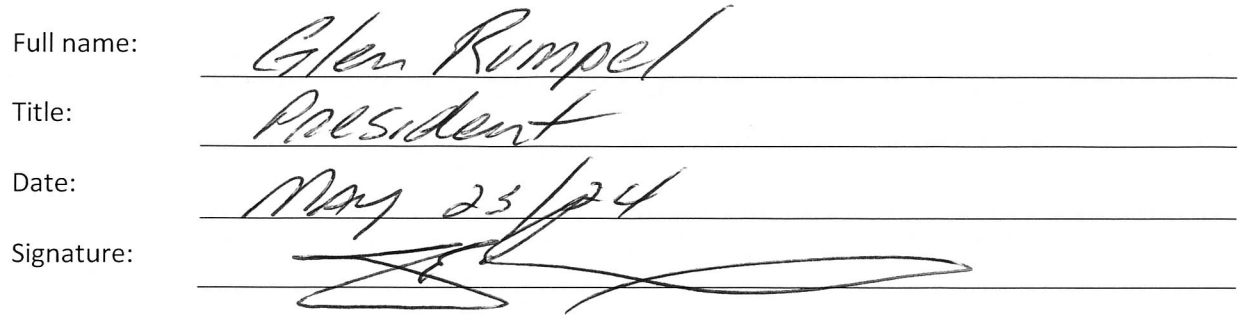 Full name: Glen Rumpel
Title: President
Date: May 23/24
Signature: